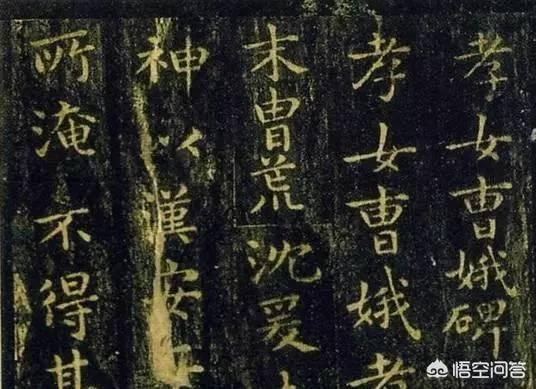 孝女曹娥碑
孝女曹娥者
末胄荒沈爰
神以漢安
所淹不得其
悟空问答